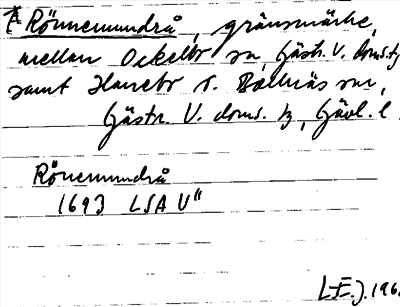 Rönnemundrå, gränsmärke,
mellan Ockelbo sn, Gästr. V. doms. tg
samt Hanebo o. Bollnäs snr,
Gästr. V. doms. tg, Gävl. l.
Rönemundrå
1693 LSA U"